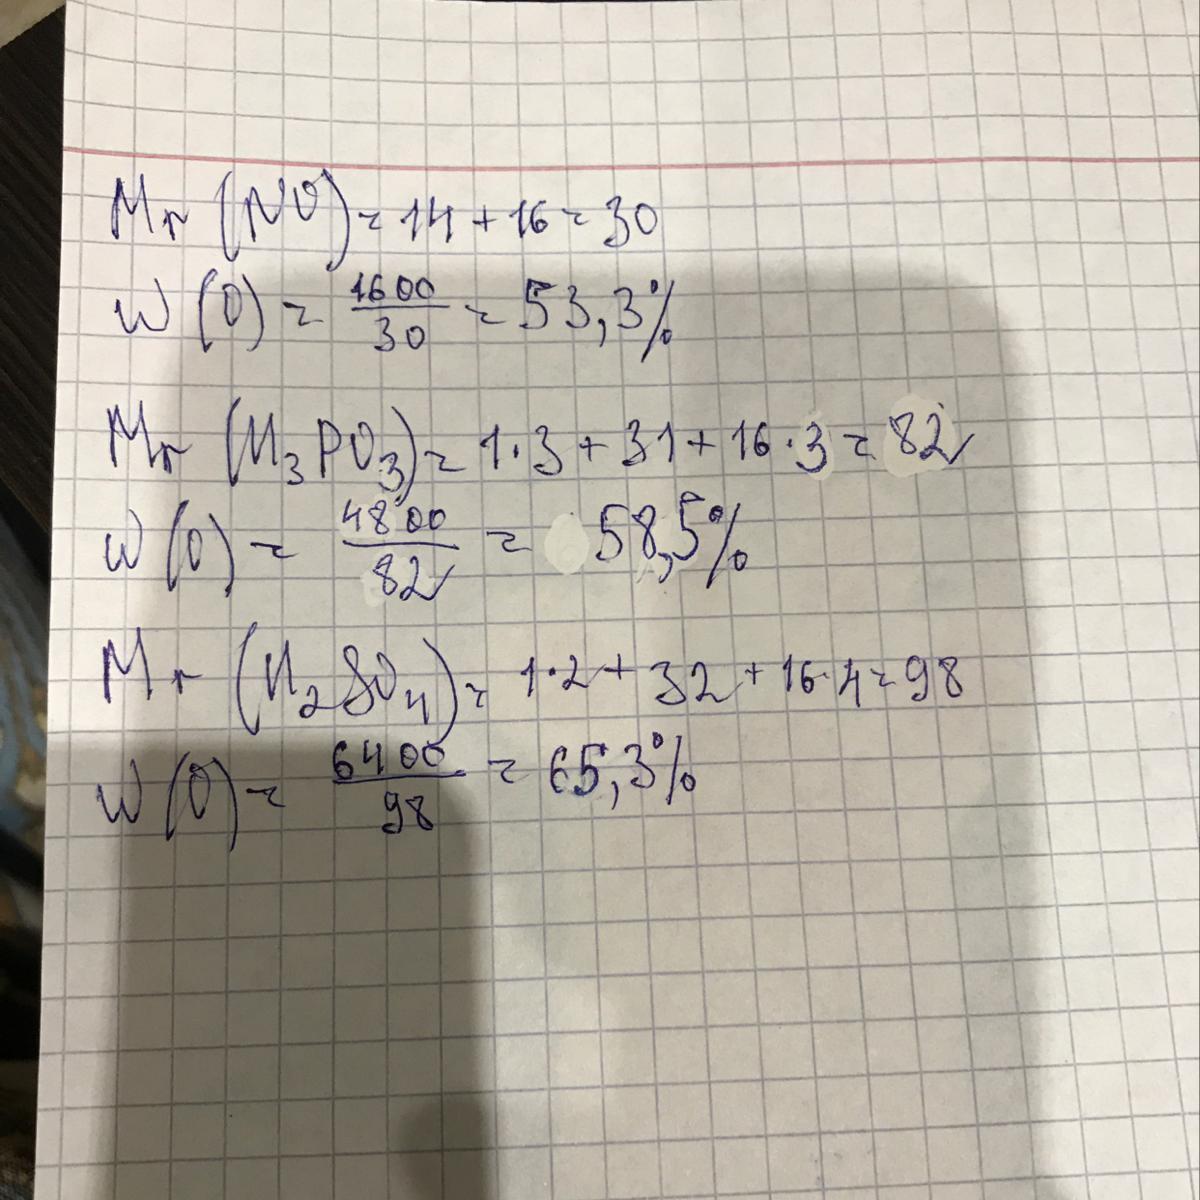 Mr (NO) = 14 + 16 = 30
W (O) = 1600/30 = 53,3%
Mr (H₃PO₃) = 1·3 + 31 + 16·3 = 82
W (O) = 4800/82 = 58,5%
Mr (H₂SO₄) = 1·2 + 32 + 16·4 = 98
W (O) = 6400/98 = 65,3%